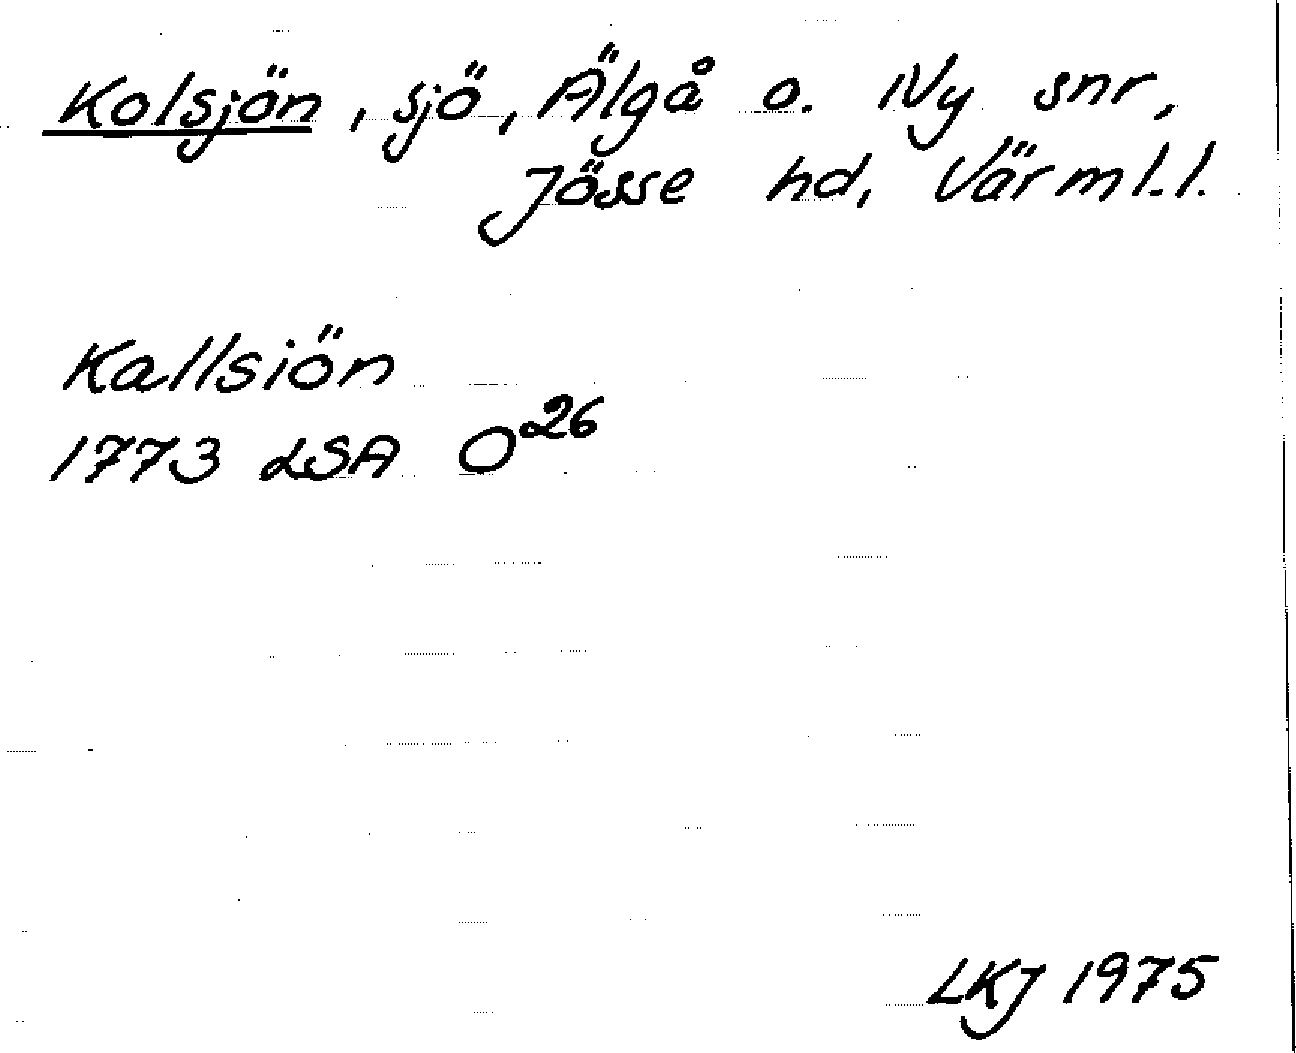 Kolsjön, sjö, Älgå o. Ny snr,
Jösse hd, Värml. l.
Kallsiön
1773 LSA O26
LKJ 1975